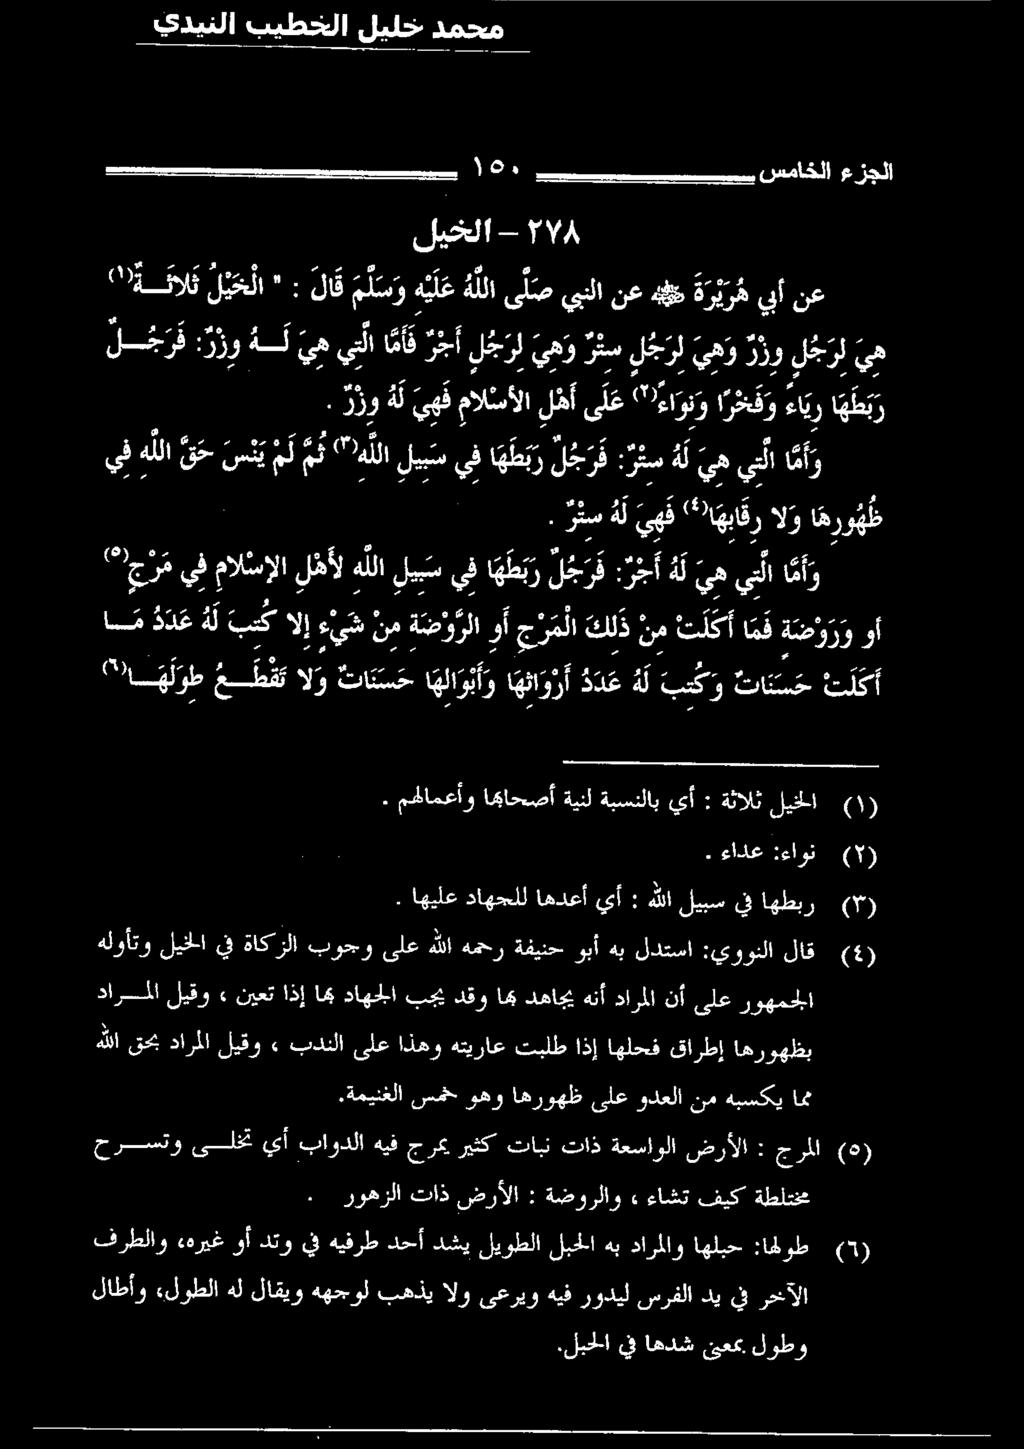 محمد خليل الخطيب النيدي
الجزء الخامس ١٥٠
٢٧٨ – الخيل
عن أبي هُرَيْرَةَ ﷺ عن النبي صَلَّى اللَّهُ عَلَيْهِ وَسَلَّمَ قَالَ : " الْخَيْلُ ثَلاثَــةٌ(١)
هِيَ لِرَجُلٍ وِزْرٌ وَهِيَ لِرَجُلٍ سِتْرٌ وَهِيَ لِرَجُلٍ أَجْرٌ فَأَمَّا الَّتِي هِيَ لَــهُ وِزْرٌ: فَرَجُــلٌ
رَبَطَهَا رِيَاءً وَفَخْرًا وَنِوَاءً(٢) عَلَى أَهْلِ الأسْلامِ فَهِيَ لَهُ وِزْرٌ .
وَأَمَّا الَّتِي هِيَ لَهُ سِتْرٌ: فَرَجُلٌ رَبَطَهَا فِي سَبِيلِ اللَّهِ(٣) ثُمَّ لَمْ يَنْسَ حَقَّ اللَّهِ فِي
ظُهُورِهَا وَلا رِقَابِهَا(٤) فَهِيَ لَهُ سِتْرٌ .
وَأَمَّا الَّتِي هِيَ لَهُ أَجْرٌ: فَرَجُلٌ رَبَطَهَا فِي سَبِيلِ اللَّهِ لأَهْلِ الإسْلامِ فِي مَرْجٍ(٥)
أو وَرَوْضَةٍ فَمَا أَكَلَتْ مِنْ ذَلِكَ الْمَرْجِ أَوِ الرَّوْضَةِ مِنْ شَيْءٍ إلا كُتِبَ لَهُ عَدَدُ مَــا
أَكَلَتْ حَسَنَاتٌ وَكُتِبَ لَهُ عَدَدُ أَرْوَاثِهَا وَأَبْوَالِهَا حَسَنَاتٌ وَلا تَقْطَــعُ طِوَلَهَــا(٦)
(١) الخيل ثلاثة : أي بالنسبة لنية أصحابها وأعمالهم .
(٢) نواء: عداء .
(٣) ربطها في سبيل الله : أي أعدها للجهاد عليها .
(٤) قال النووي: استدل به أبو حنيفة رحمه الله على وجوب الزكاة في الخيل وتأوله
الجمهور على أن المراد أنه يجاهد بها وقد يجب الجهاد بها إذا تعين ، وقيل المــراد
بظهورها إطراق فحلها إذا طلبت عاريته وهذا على الندب ، وقيل المراد بحق الله
مما يكسبه من العدو على ظهورها وهو خمس الغنيمة.
(٥) المرج : الأرض الواسعة ذات نبات كثير يمرج فيه الدواب أي تخلــى وتســرح
مختلطة كيف تشاء ، والروضة : الأرض ذات الزهور .
(٦) طولها: حبلها والمراد به الحبل الطويل يشد أحد طرفيه في وتد أو غيره، والطرف
الآخر في يد الفرس ليدور فيه ويرعى ولا يذهب لوجهه ويقال له الطول، وأطال
وطول بمعنى شدها في الحبل.